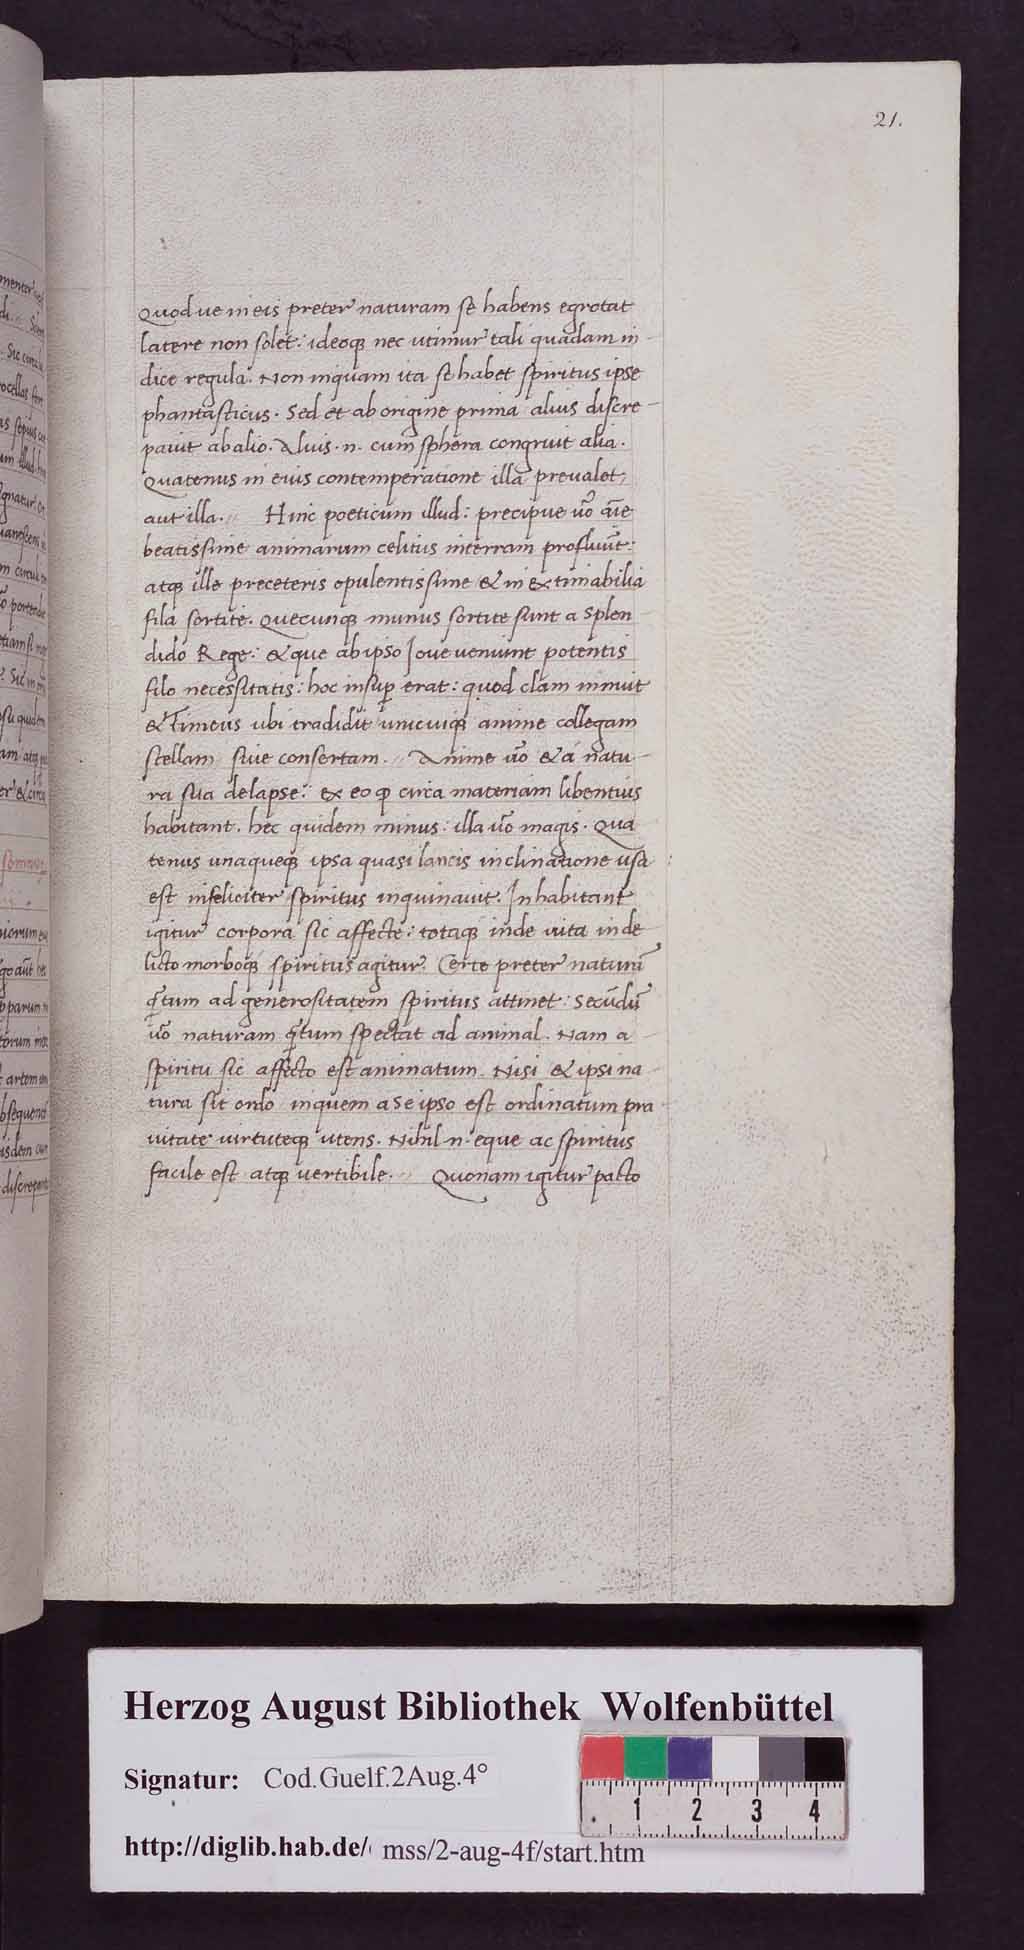 21.
Quod ue in eis preter naturam se habens egrotat
latere non solet: ideoqꝫ nec utimur tali quadam in-
dice regula. Non inquam ita se habet spiritus ipse
phantasticus. Sed et ab origine prima alius discre-
pauit ab alio. Alius .n. cum sphera congruit alia.
Quatenus in eius contemperatione illa preualet,
aut illa. Hinc poeticum illud: precipue uo͂ aı͂e
beatissime animarum celitus in terram profluu͂t:
atqꝫ ille preceteris opulentissime & in extimabilia
fila sortite. Quecunqꝫ munus sortite sunt a splen-
dido Rege: & que ab ipso Ioue ueniunt potentis
filo necessitatis: hoc insuꝑ erat: quod clam innuit
& Timeus ubi tradidit unicuiqꝫ anime collegam
stellam siue consertam. Anime uo͂ & a natu-
ra sua delapse: ex eo ꝙ circa materiam libentius
habitant. hec quidem minus: illa uo͂ magis. Qua
tenus unaqueqꝫ ipsa quasi lancis inclinatione usa
est infeliciter spiritus inquinauit. Inhabitant
igitur corpora sic affecte: totaqꝫ inde uita in de
licto morboqꝫ spiritus agitur. Certe preter natura͂
q͂tum ad generositatem spiritus attinet: Secu͂du͂
uo͂ naturam q͂tum spectat ad animal. Nam a
spiritu sic affecto est animatum. Nisi & ipsi na-
tura sit ordo inquem a se ipso est ordinatum pra-
uitate uirtuteqꝫ utens. Nihil .n. eque ac spiritus
facile est atqꝫ uertibile. Quonam igitur pacto
Herzog August Bibliothek Wolfenbüttel
Signatur: Cod.Guelf.2Aug.4°
http://diglib.hab.de/ mss/2-aug-4f/start.htm
1 2 3 4